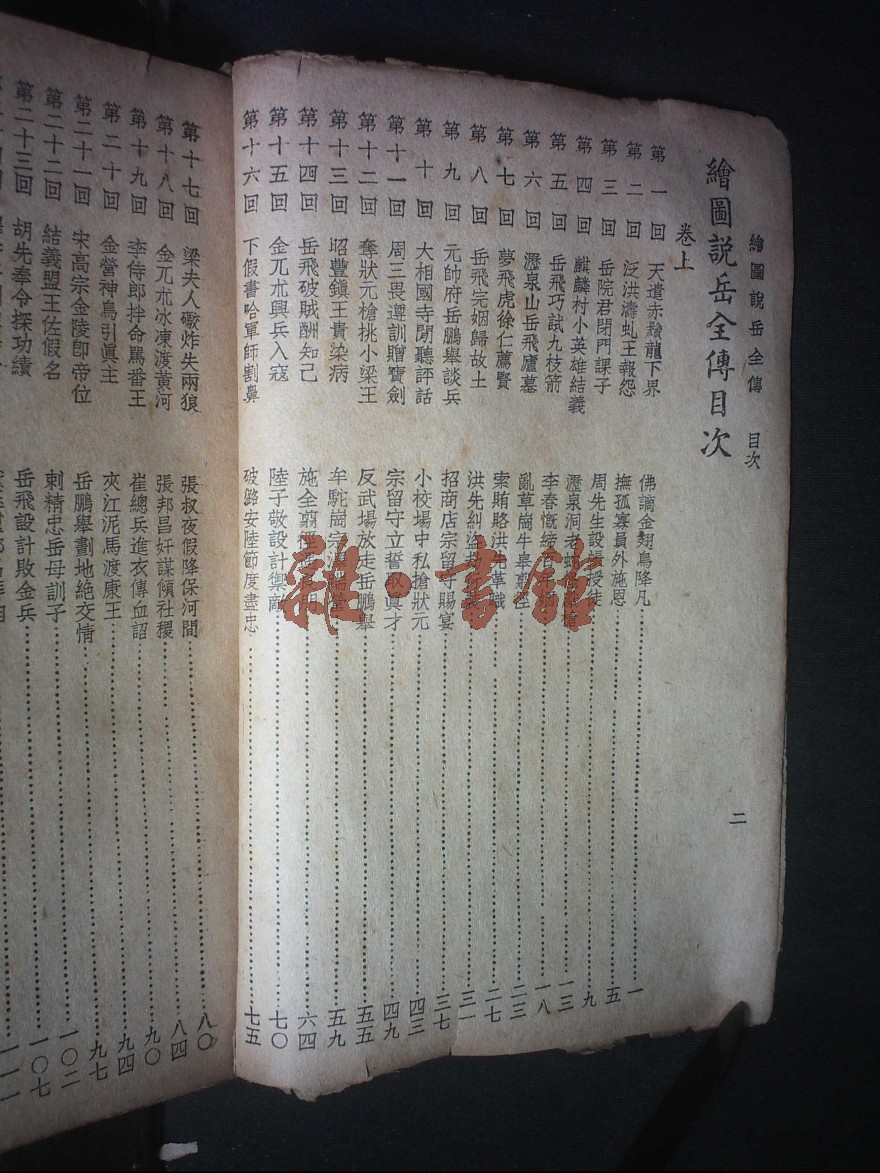 繪圖說岳全傳 目次 二
繪圖說岳全傳目次
卷上
第一回 天遣赤鬚龍下界 佛謫金翅鳥降凡 一
第二回 泛洪濤虬王報怨 撫孤寡員外施恩 五
第三回 岳院君閉門課子 周先生設帳授徒 九
第四回 麒麟村小英雄結義 瀝泉洞老蛇 一三
第五回 岳飛巧試九枝箭 李春慨締 一八
第六回 瀝泉山岳飛廬墓 亂草崗牛皋剪徑 二三
第七回 夢飛虎徐仁薦賢 索賄賂洪先革職 二七
第八回 岳飛完姻歸故土 洪先糾盜 三一
第九回 元帥府岳鵬舉談兵 招商店宗留守賜宴 三七
第十回 大相國寺閒聽評話 小校場中私搶狀元 四三
第十一回 周三畏遵訓贈寶劍 宗留守立誓取眞才 四九
第十二回 奪狀元槍挑小梁王 反武場放走岳鵬舉 五五
第十三回 昭豐鎭王貴染病 牟駝崗宗澤 五九
第十四回 岳飛破賊酬知己 施全剪徑 六四
第十五回 金兀朮興兵入寇 陸子敬設計禦敵 七〇
第十六回 下假書哈軍師割鼻 破潞安陸節度盡忠 七五
第十七回 梁夫人礮炸失兩狼 張叔夜假降保河間 八〇
第十八回 金兀朮冰凍渡黃河 張邦昌奸謀傾社稷 八四
第十九回 李侍郎拌命罵番王 崔總兵進衣傳血詔 九〇
第二十回 金營神鳥引眞主 夾江泥馬渡康王 九四
第二十一回 宋高宗金陵卽帝位 岳鵬舉劃地絶交情 九七
第二十二回 結義盟王佐假名 刺精忠岳母訓子 一〇二
第二十三回 胡先奉令探功績 岳飛設計敗金兵 一〇七
雜·書館